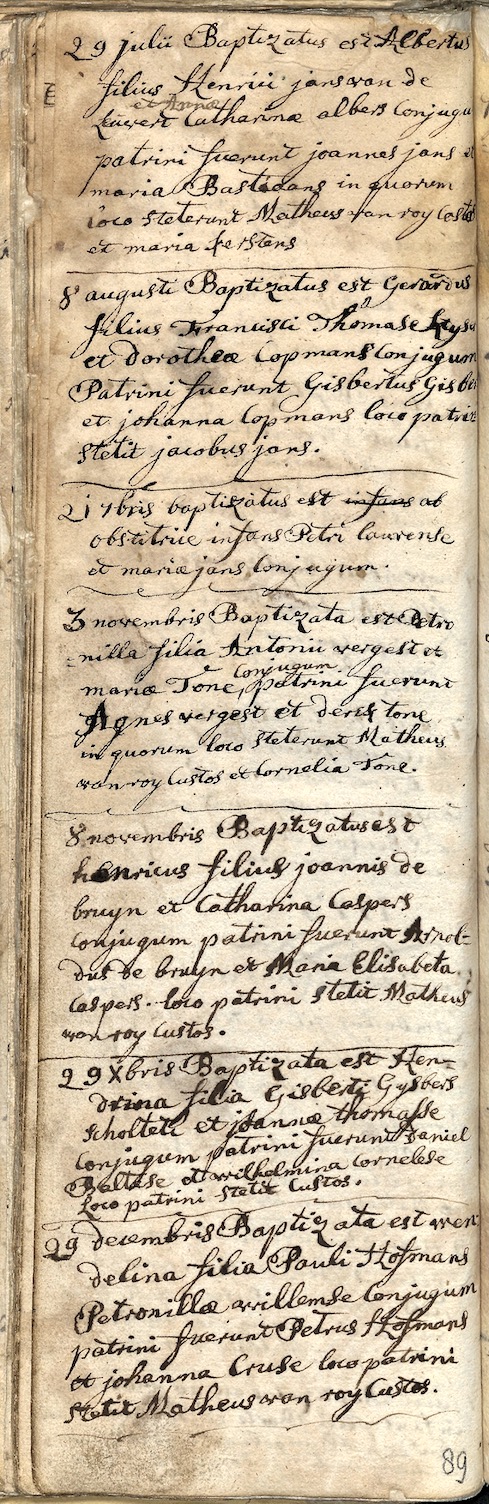 29 julii Baptizatus est Albertus
filius Henrici jans van de
et Anna
Leuvert Catharinæ albers Conjugu
patrini fuerunt joannes jans et
maria Bastidans in quorum
loco steterunt Matheus van roy Custos
et maria kerstens
8 augusti Baptizatus est Gerardus
filius Francisci Thomase
et dorotheæ Copmans Conjugum
Patrini fuerunt Gisbertus Gisbe
et johanna Copmans loco patrini
stetit jacobus jans.
21 7bris baptizatus est infans ab
obstitrice infans Petri laurense
et mariæ jans Conjugum.
3 novembris Baptizata est Petro
nilla filia Antonii vergest et
conjugum
mariæ Tone, patrini fuerunt
Agnes vergest et derck tone
in quorum loco steterunt Matheus
van roy Custos et Cornelia Tone.
8 novembris Baptizatus est
henricus filius joannis de
bruyn et Catharina Caspers
Conjugum patrini fuerunt Arnol=
dus de bruyn et Maria Elisabeta
Caspers. loco patrini stetit Matheus
van roy Custos.
29 Xbris Baptizata est Hen=
drina filia Gisberti Gysbers
Scholteti et joannæ thomasse
Conjugum patrini fuerunt Daniel
Baltase et wilhelmina Cornelese
Loco patrini stetit Custos.
29 decembris Baptizata est wen
delina filia Pauli Hofmans
Petronillæ willemse Conjugum
patrini fuerunt Petrus Hofmans
et johanna Cruse loco patrini
stetit Matheus van roy Custos.
89